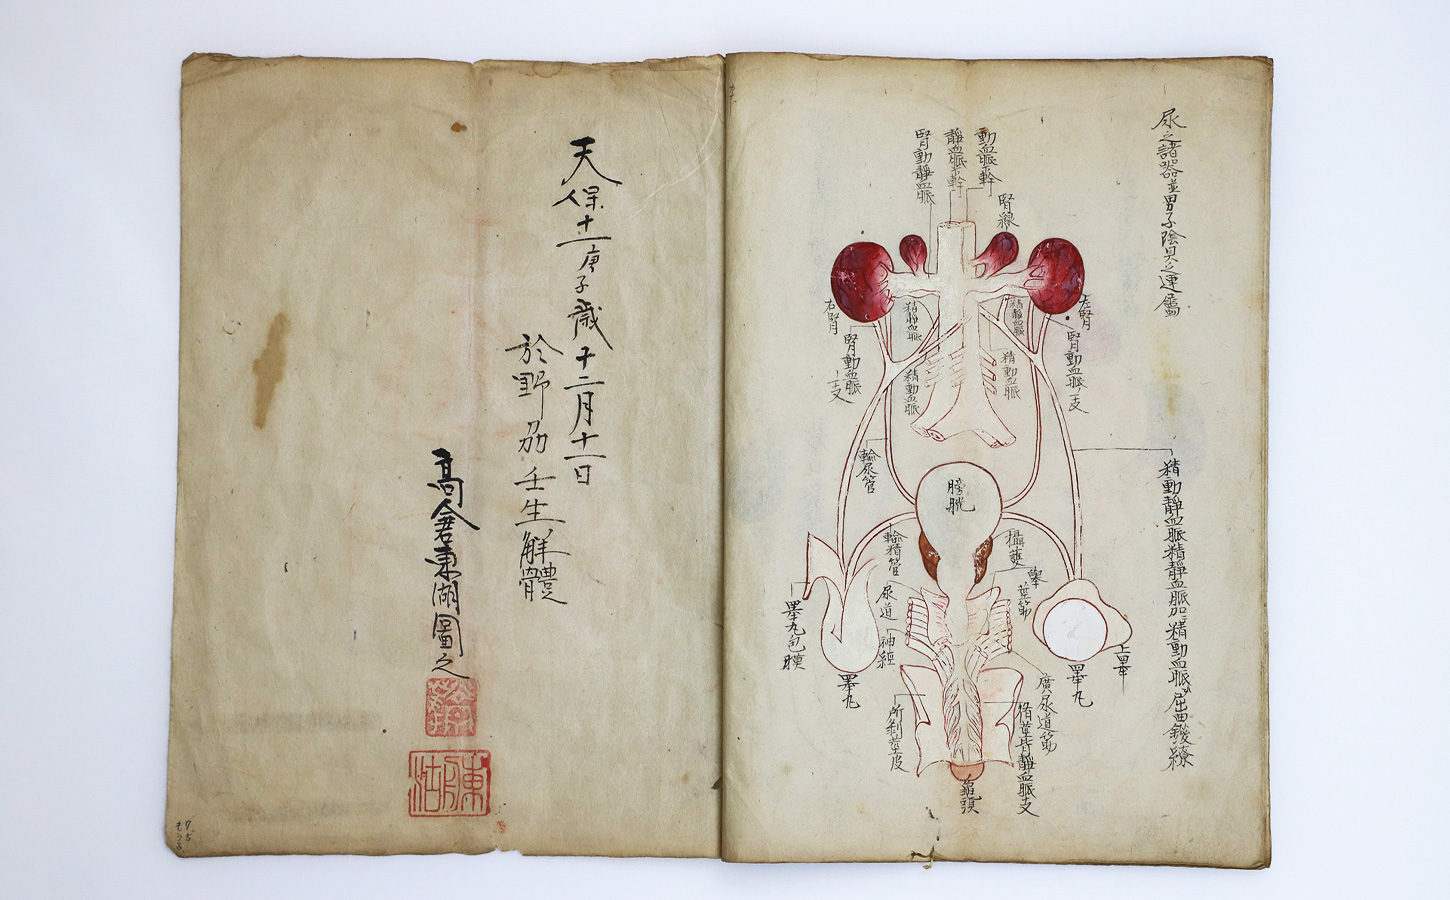 尿之諸器並男子陰具之連屬
動血脈幹
静血脈幹
腎動静血脈
腎線
左腎
右腎
腎動血脈ノ支
腎動血脈ノ支
精静血脈
精静血脈
精動血脈
精動血脈
輸尿管
膀胱
精動静血脈精静血脈加精動血脈
輸精管
攝護
尿道
神經
睾丸包膜
睾丸
睾丸
上睾
廣尿道筋
所剥莖皮
龜頭
天保十一庚子歳十二月十一日
於野州壬生解體
高倉東湖圖之
東湖